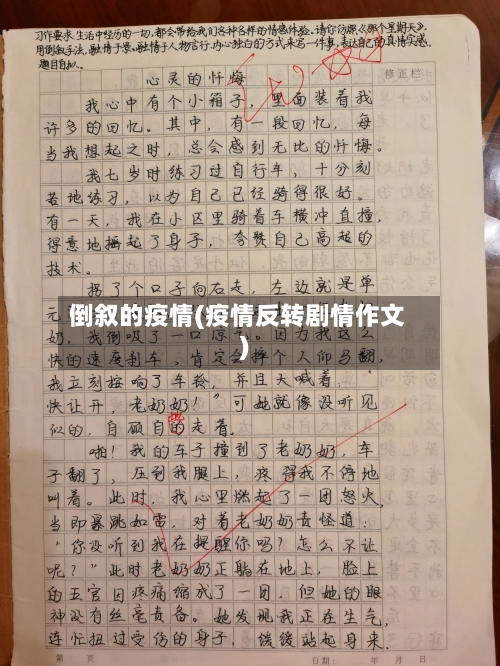 习作要求:生活中经历的一切,都会带给我们各种各样的情感体验。请你仿照《那个星期天》,
用倒叙手法,融情于景、融情于人物言行、内心独白的方式来写一件事,表达自己的真情实感。
题目自拟。
心灵的忏悔
修正栏
我心中有个小箱子,里面装着我
许多的回忆。其中,有一段回忆,每
当我想起之时,总会感到无比的忏悔。
我七岁时练习过自行车,十分刻
苦地练习,以为自己已经骑得很好。
有一天,我在小区里骑着车横冲直撞,
得意地摇起了身子,夸赞自己高超的
技术。
拐了个口子向右走,左边就是单
元
倒叙的疫情(疫情反转剧情作文
)
奶,我倒吸了一口凉气。因为我这么
快的速度刹车,肯定会摔个人仰马翻,
我立刻按响了车铃,并且大喊着:“
快让开,老奶奶!”可她就像没听见
似的,自顾自的走着。
啪!我的车子撞到了老奶奶,车
子翻了,压到我腿上,疼得我不停地
叫着。此时,我心里燃起了一团怒火,
当即暴跳如雷,对着老奶奶责怪道:
“你没听到我在提醒你吗?怎么不让
呢?”此时老奶奶正躺在地上,脸上
的五官因疼痛缩成了一团,但她的眼
神没有丝毫责备。她发现我正在生气,
连忙扭过受伤的身子,缓缓站起身来,
第 页
日期: 年 月 日